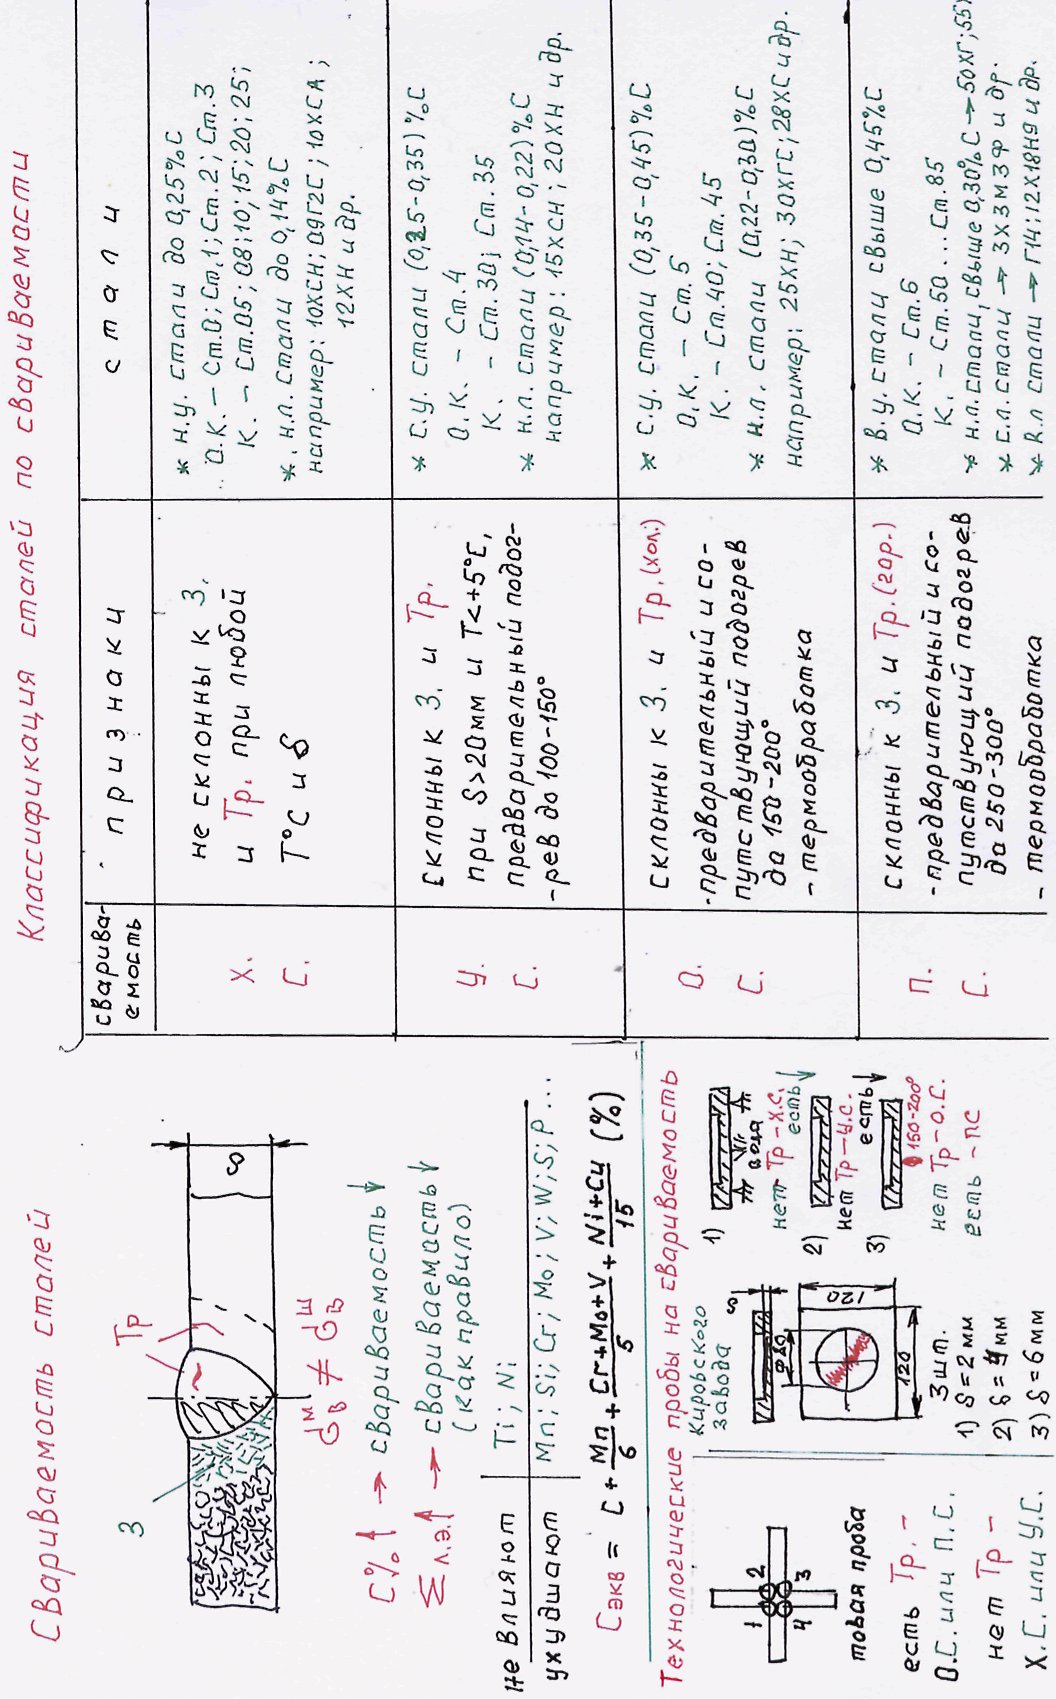 Свариваемость сталей
З
Тр
S
σвм ≠ σвш
С%↑ → свариваемость↓
Σл.э.↑ → свариваемость↓
(как правило)
Не влияют Ti; Ni
ухудшают Mn; Si; Cr; Mo; V; W; S; P...
Сэкв = С + Mn/6 + Cr+Mo+V/5 + Ni+Cu/15 (%)
Технологические пробы на свариваемость
1 2
4 3
товая проба
есть Тр. –
О.С. или П.С.
нет Тр –
Х.С. или У.С.
Кировского
завода
S
Ф80
120
120
3 шт.
1) δ=2мм
2) δ=4мм
3) δ=6мм
1)
вода
нет Тр-Х.С.
есть↓
2)
нет Тр-У.С.
есть↓
3)
150-200°
нет Тр-О.С.
есть - ПС
Классификация сталей по свариваемости
сварива-
емость
признаки
стали
Х.
С.
не склонны к З.
и Тр. при любой
Т°С и δ
* н.у. стали до 0,25%С
О.К. – Ст.0; Ст.1; Ст.2; Ст.3
К. – Ст.05; 08; 10; 15; 20; 25;
*. н.л. стали до 0,14%С
например: 10ХСН; 09Г2С; 10ХСА;
12ХН и др.
У.
С.
склонны к З. и Тр.
при S>20мм и Т<+5°С,
предварительный подог-
-рев до 100-150°
* с.у. стали (0,25-0,35)%С
О.К. – Ст.4
К. – Ст.30; Ст.35
* н.л. стали (0,14-0,22)%С
например: 15ХСН; 20ХН и др.
О.
С.
склонны к З. и Тр.(хол.)
-предварительный и со-
путствующий подогрев
до 150-200°
- термообработка
* с.у. стали (0,35-0,45)%С
О.К. – Ст.5
К. – Ст.40; Ст.45
* н.л. стали (0,22-0,30)%С
например: 25ХН; 30ХГС; 28ХС и др.
П.
С.
склонны к З. и Тр.(гор.)
-предварительный и со-
путствующий подогрев
до 250-300°
- термообработка
* в.у. стали свыше 0,45%С
О.К. – Ст.6
К. – Ст.50...Ст.85
* н.л. стали, свыше 0,30%С → 50ХГ; 55)
* с.л. стали → 3Х3М3Ф и др.
* в.л. стали → Г14; 12Х18Н9 и др.